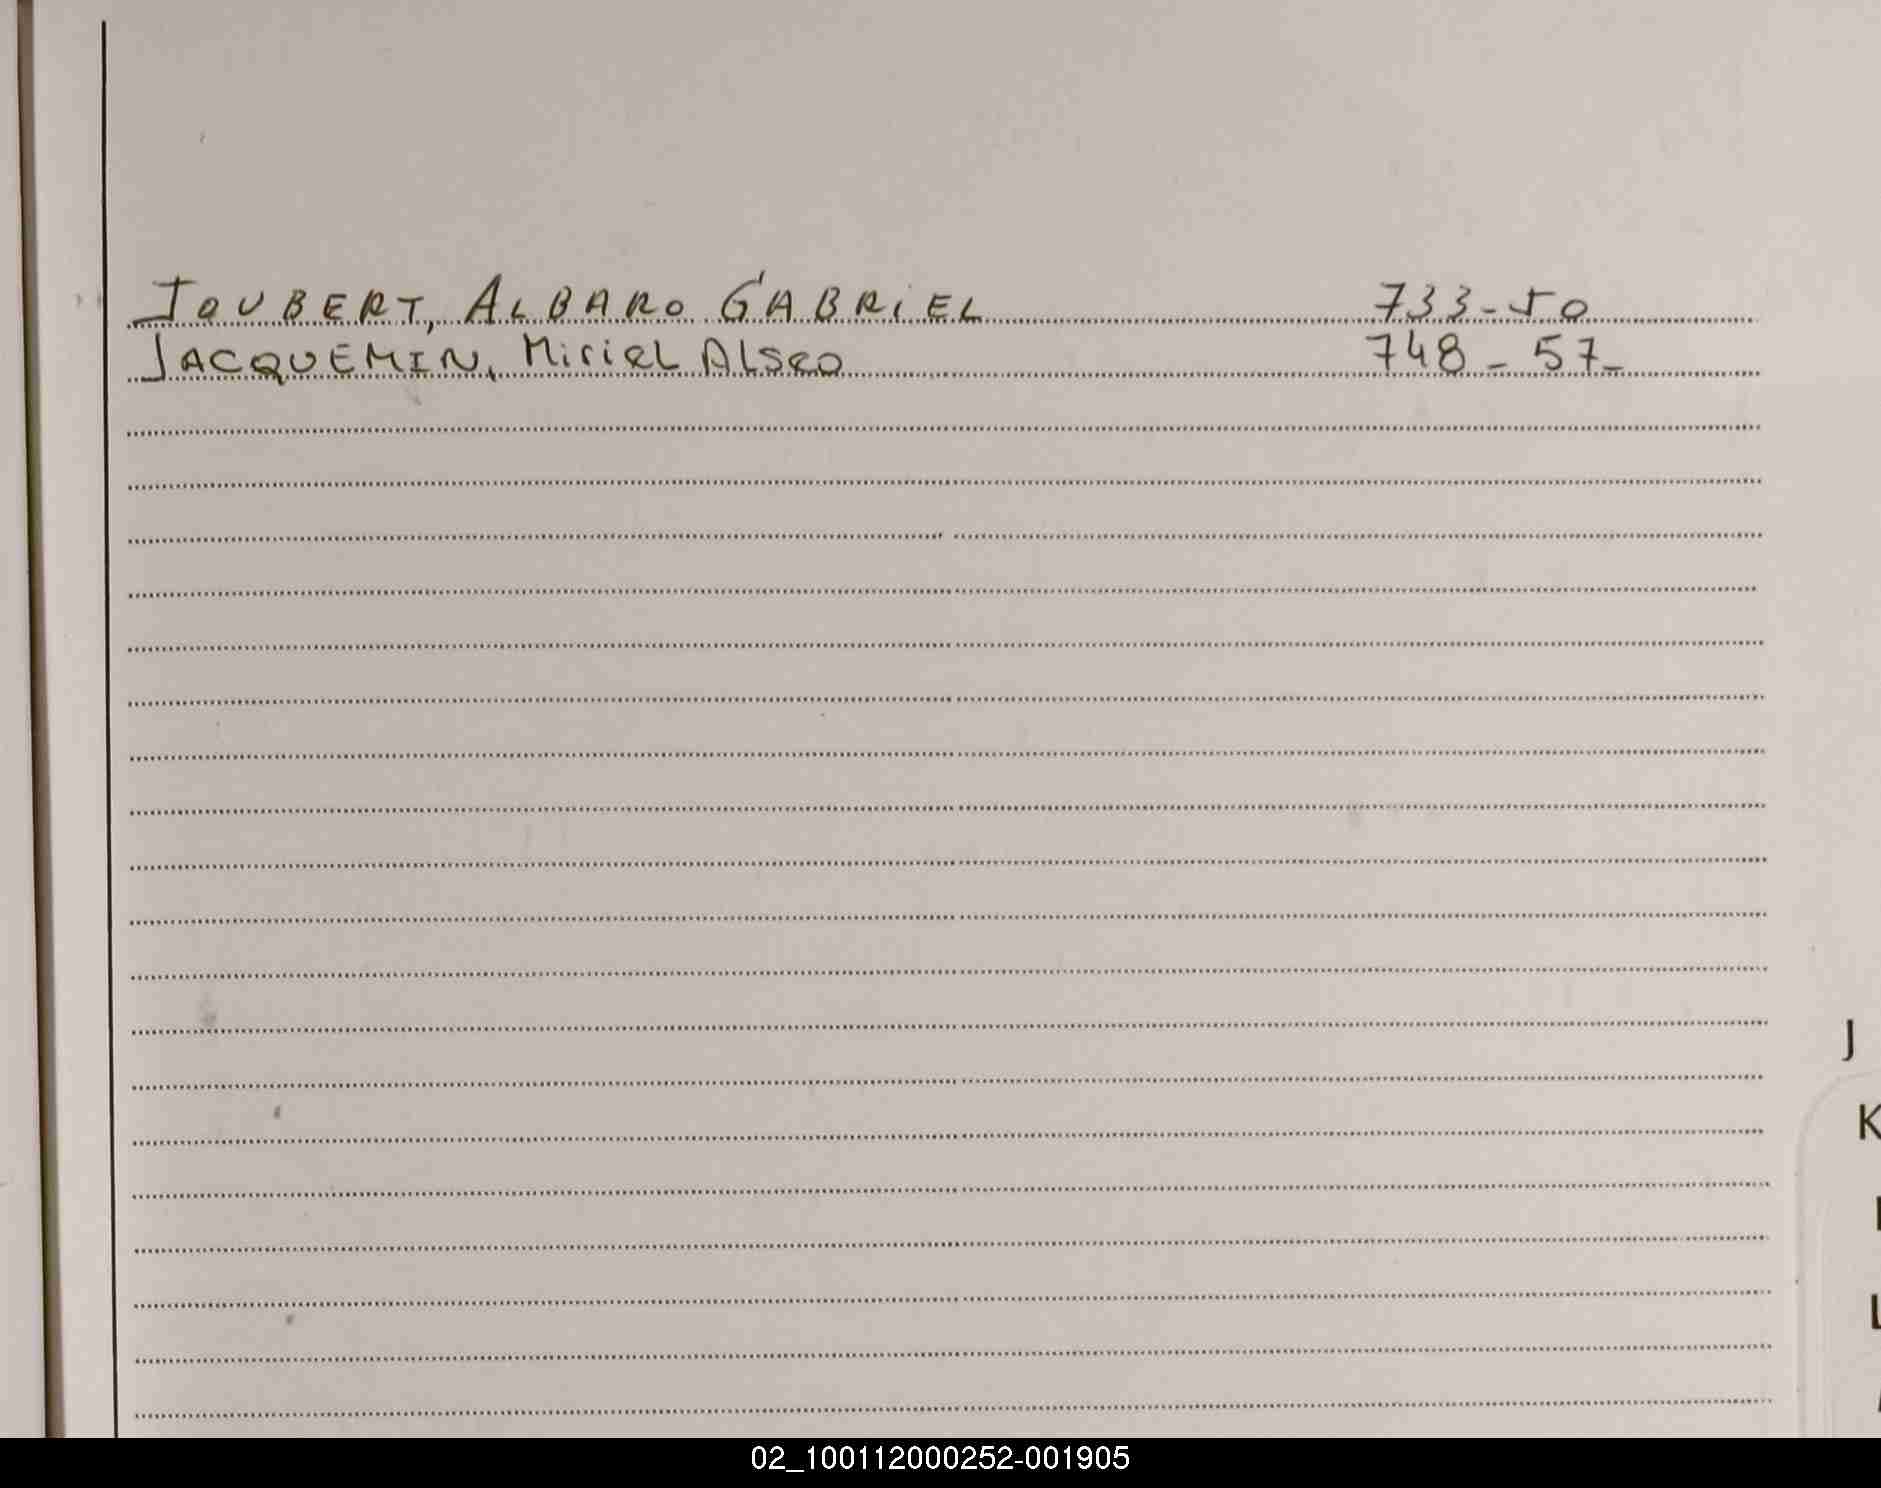 JOUBERT, ALBARO GABRIEL 733-50
JACQUEMIN, Miriel Alseo 748-57-
J
K
L
02_100112000252-001905